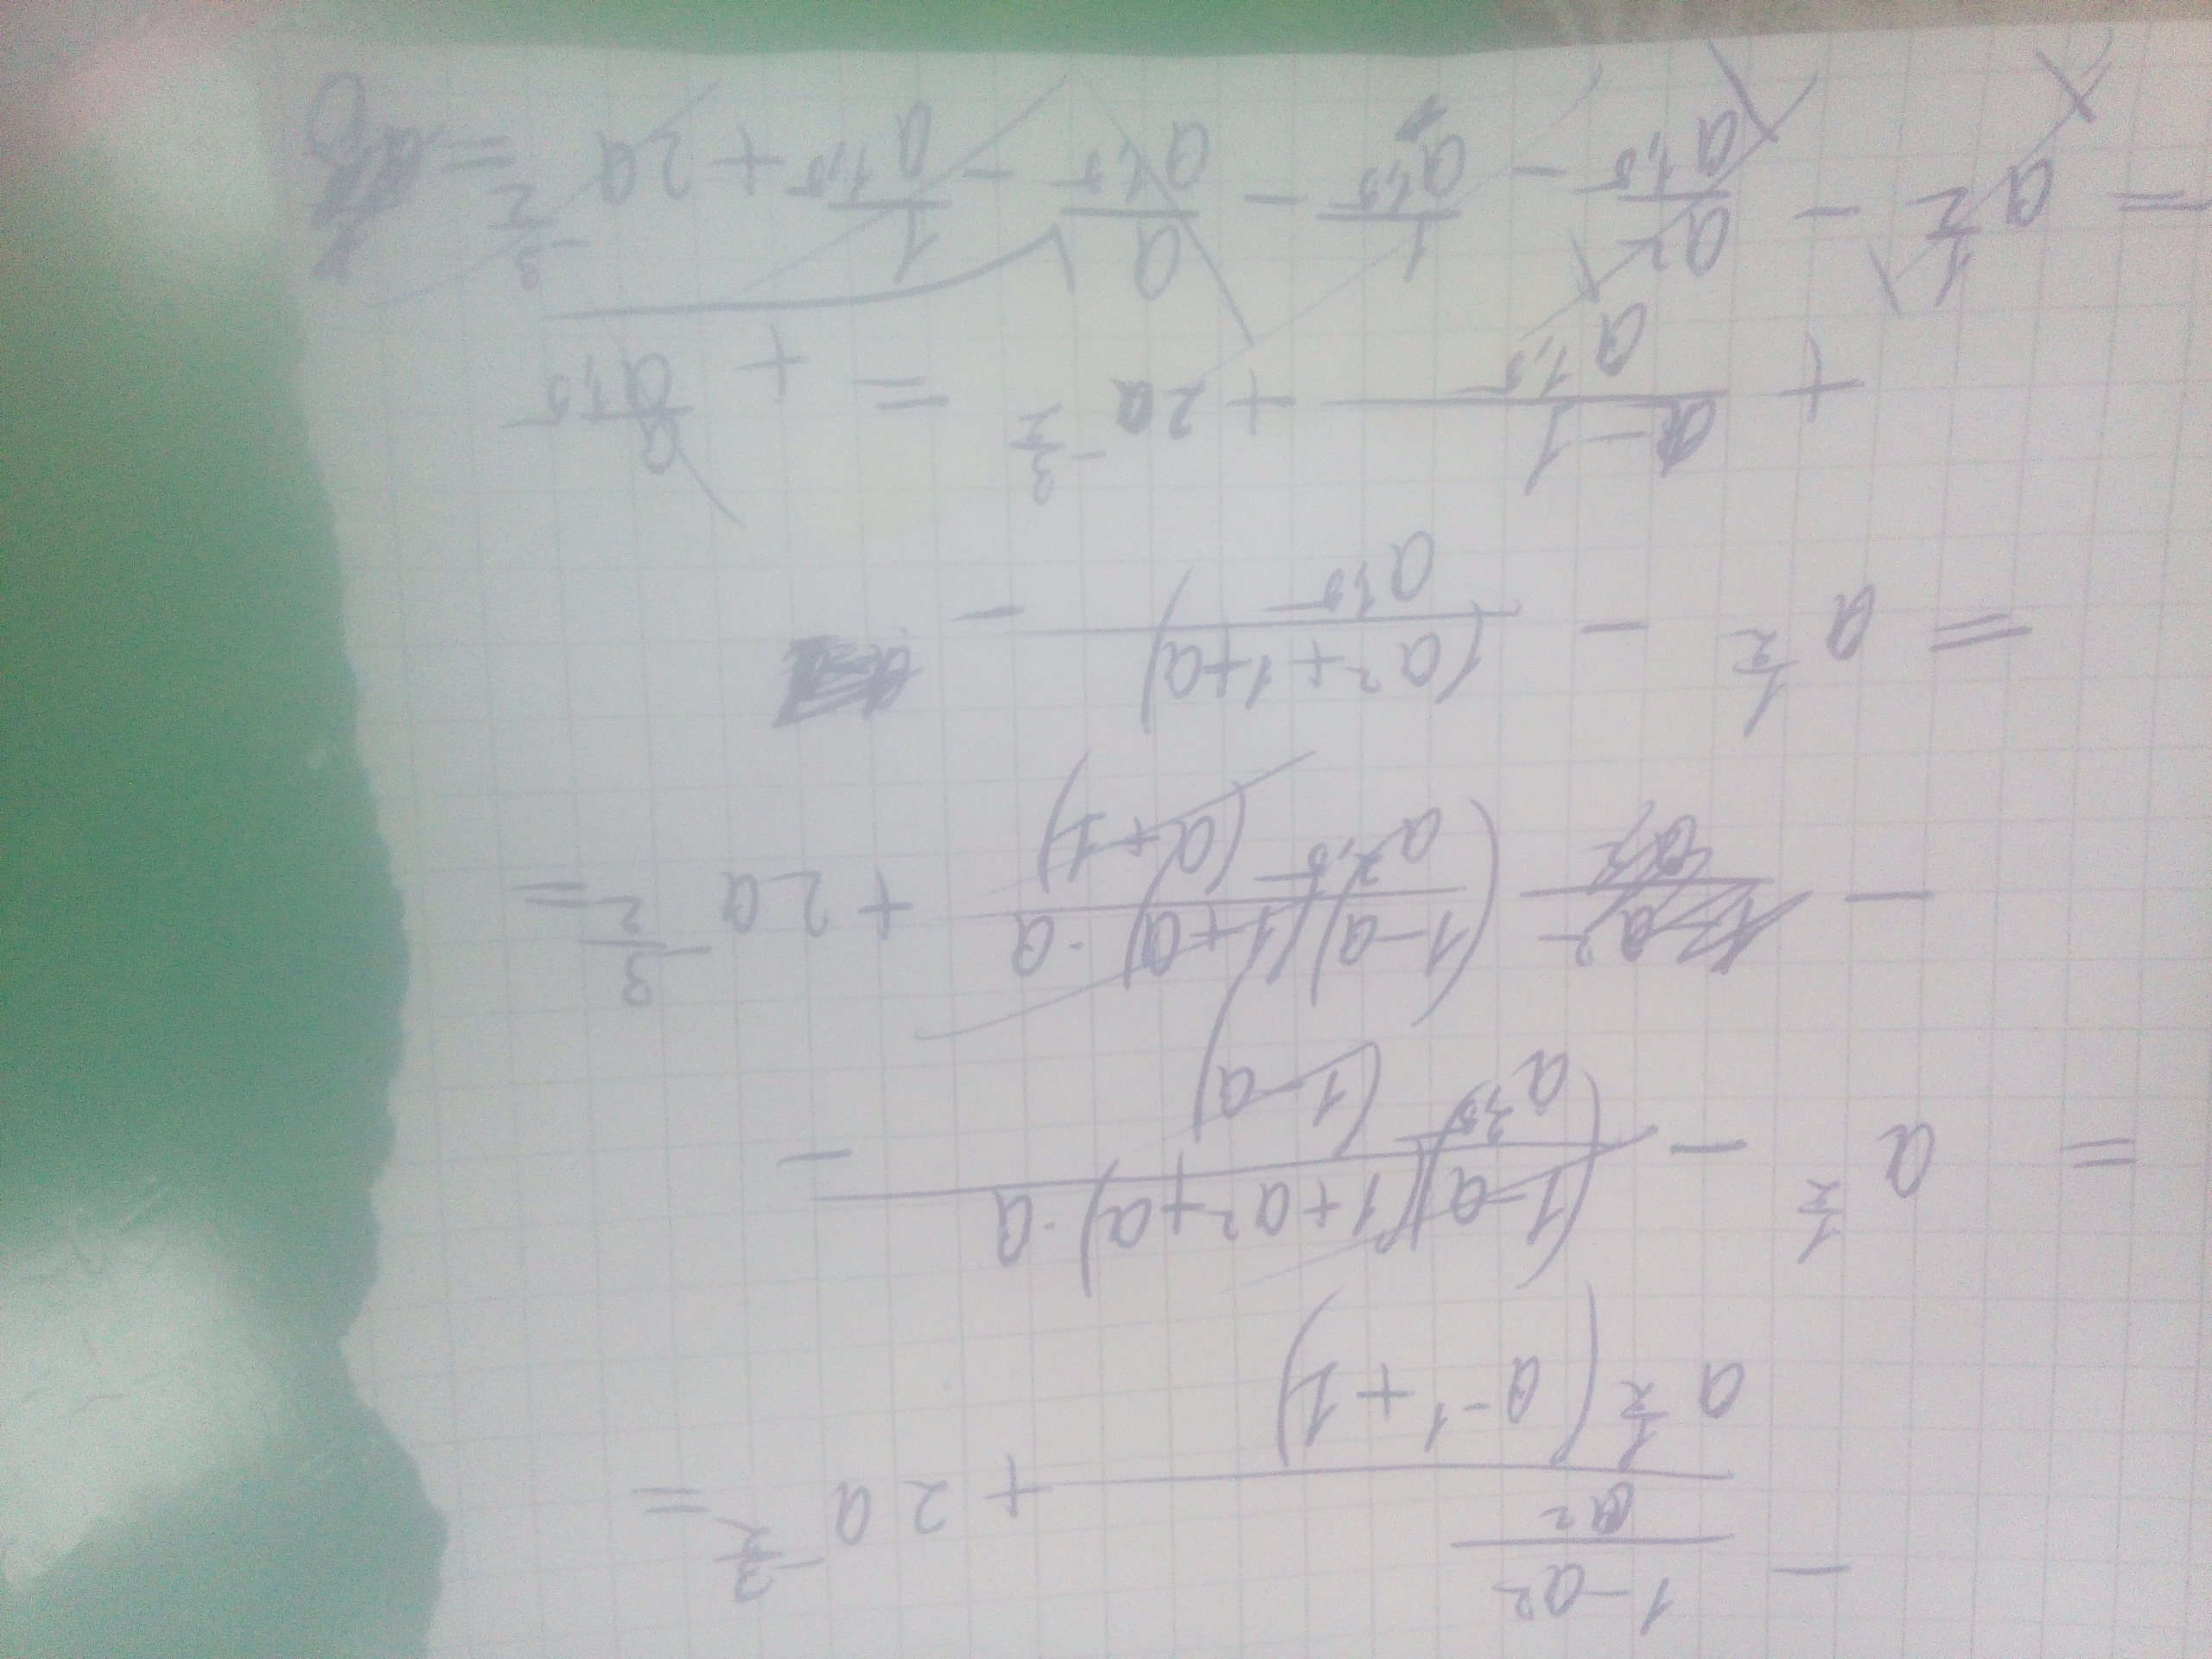 - \frac{\frac{1-a^2}{a^2}}{a^{\frac{1}{2}}(a^{-1}+1)} + 2a^{-\frac{3}{2}} =
= a^{\frac{1}{2}} - \frac{(1-a)(1+a^2+a) \cdot a}{a^{2,5}(1-a)} -
- \frac{(1-a)(1+a) \cdot a}{a^{2,5}(a+1)} + 2a^{-\frac{3}{2}} =
= a^{\frac{1}{2}} - \frac{(a^2+1+a)}{a^{1,5}} -
+ \frac{a-1}{a^{1,5}} + 2a^{-\frac{3}{2}} = + \frac{a}{a^{1,5}}
= a^{\frac{1}{2}} - \frac{a^2}{a^{1,5}} - \frac{1}{a^{1,5}} - \frac{a}{a^{1,5}} - \frac{1}{a^{1,5}} + 2a^{-\frac{3}{2}} = 0